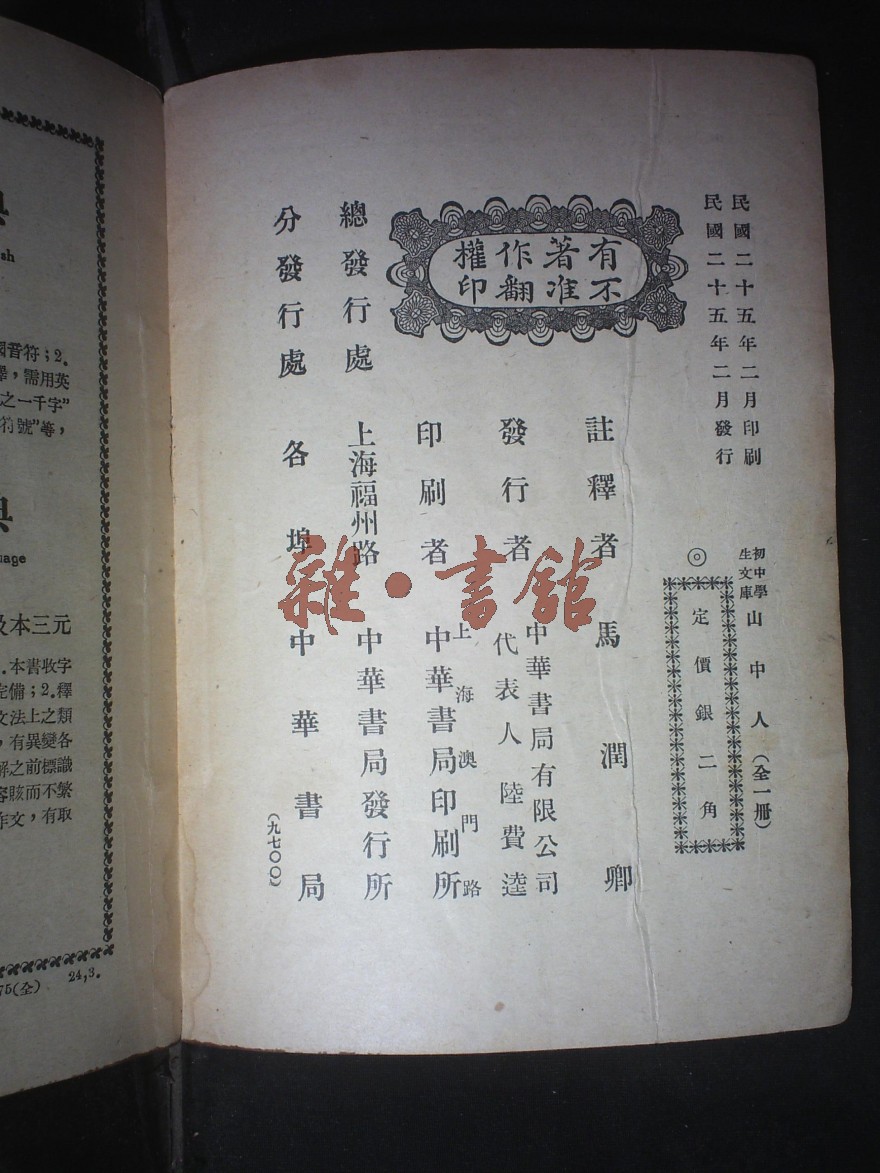 民國二十五年二月印刷
民國二十五年二月發行
初中學
生文庫
山中人（全一冊）
◎定價銀二角
有著作權
不准翻印
註釋者 馬潤卿
發行者 中華書局有限公司
代表人 陸費逵
印刷者 上海澳門路
中華書局印刷所
總發行處 上海福州路 中華書局發行所
分發行處 各埠 中華書局
（九七〇〇）
雜·書館
sh
國音符；2.
，需用英
之一千字”
符號”等，
uage
及本三元
.本書收字
完備；2.釋
文法上之類
，有異變各
解之前標識
容賅而不繁
作文，有取
75(全) 24,3.